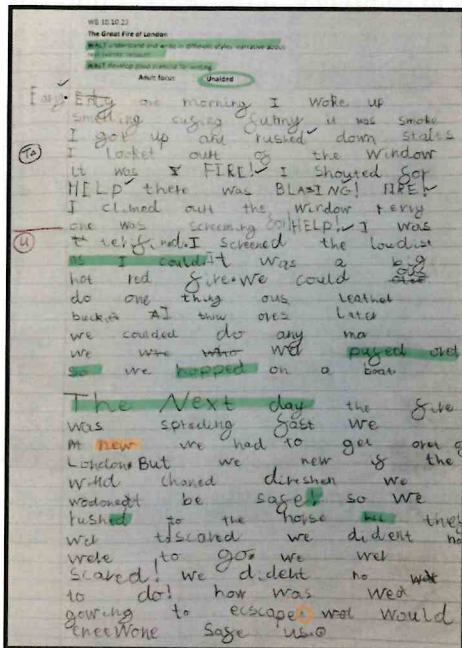 WB 10.10.22
The Great Fire of London
WALT understand and write in different styles: narrative about
WALT develop good stamina for writing
Adult focus Unaided
Early one morning I woke up
smelling it was smoke
I got up and rushed down stairs
To I looket out of the window
It was FIRE! I shouted for
HELP there was BLASING! FIRE!
I climed out the window
one was screming for HELP! I was
U I screened the loudist
as I could. It was a big
hot red fire. We could
do one thing leathel
later
we coulded do any
we
so we hopped on a boat
The Next day the fire
was spreding fast We
At new we had to get
London. But we new if the
wind chaned direshen we
be safe! so we
rushed to the horse
wer scared we dident no
were to go. we wer
scared! we dident no
to do! how was
gowing to ecscape would
safe us.